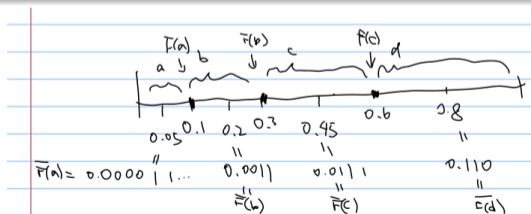 F(a) F(b) F(c)
a b c d
0.05 0.1 0.2 0.3 0.45 0.6 0.8
F̅(a) = 0.0000 11... 0.0011 0.0111 0.110
F̅(b) F̅(c) F̅(d)